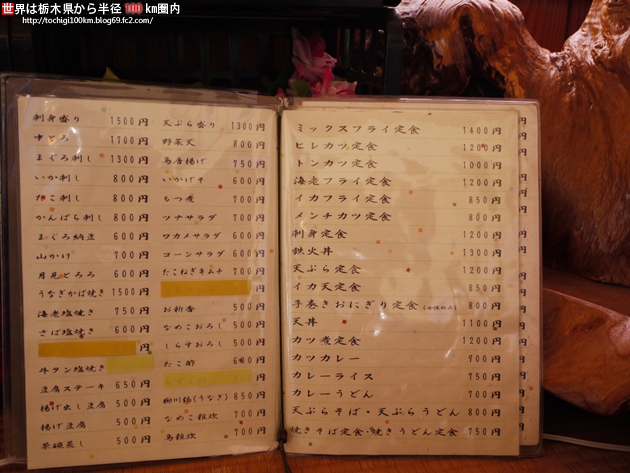 世界は栃木県から半径 100 km圏内
http://tochigi100km.blog69.fc2.com/
刺身盛り 1500円
中とろ 1700円
まぐろ刺し 1300円
いか刺し 800円
たこ刺し 800円
かんぱち刺し 800円
まぐろ納豆 600円
山かけ 700円
月見とろろ 600円
うなぎかば焼き 1500円
海老塩焼き 750円
さば塩焼き 600円
円
牛タン塩焼き
豆腐ステーキ 650円
揚げ出し豆腐 500円
揚げ豆腐 500円
茶碗蒸し 500円
天ぷら盛り 1300円
野菜天 800円
鳥唐揚げ 750円
いかげそ 600円
もつ煮 700円
ツナサラダ 700円
ワカメサラダ 600円
コーンサラダ 600円
たこねぎキムチ 700円
円
お新香 500円
なめこおろし 500円
しらすおろし 500円
たこ酢 600円
円
柳川鍋(うなぎ) 850円
なめこ雑炊 700円
鳥雑炊 700円
ミックスフライ定食 1400円
ヒレカツ定食 1200円
トンカツ定食 1000円
海老フライ定食 1200円
イカフライ定食 850円
メンチカツ定食 800円
刺身定食 1200円
鉄火丼 1300円
天ぷら定食 1200円
イカ天定食 850円
手巻きおにぎり定食 800円
天丼 1100円
カツ煮定食 1200円
カツカレー 900円
カレーライス 750円
カレーうどん 700円
天ぷらそば・天ぷらうどん 800円
焼きそば定食・焼きうどん定食 750円